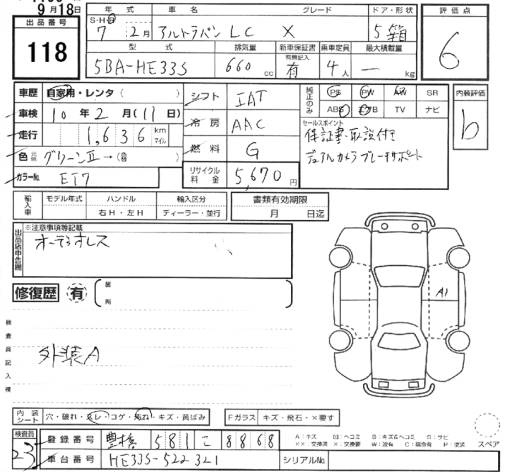 9月18日
出品番号
118
年式 車名 グレード ドア・形状
S・H・R
7 2月 アルトラパン LC X 5 箱
型式 排気量 新車保証書 乗車定員 最大積載量
5BA-HE33S 660cc 有 4人 — kg
評価点
6
車歴 自家用・レンタ( )
車検 10年2月(11日)
走行 1,636 km マイル
色 元色 グリーンⅡ→(色替 )
カラーNo. EI7
シフト IAT
冷房 AAC
燃料 G
リサイクル料金 5,670円
純正のみ
PS PW AW SR
ABS エアB TV ナビ
セールスポイント
保証書・取説付き
デュアルカメラブレーキサポート
内装評価
b
輸入車
モデル年式 ハンドル 輸入区分
右H・左H ディーラー・並行
書類有効期限
月 日迄
出品店申告欄
※注意事項等記載
オーディオレス
修復歴 有 箇所
A1
検査員記入欄
外装A
内装シート
穴・破れ・スレ・コゲ・汚れ・キズ・黄ばみ
Fガラス キズ・飛石・×要す
検査員
23
登録番号 豊橋 581 こ 8868
車台番号 HE33S-522321
シリアルNo.
スペア